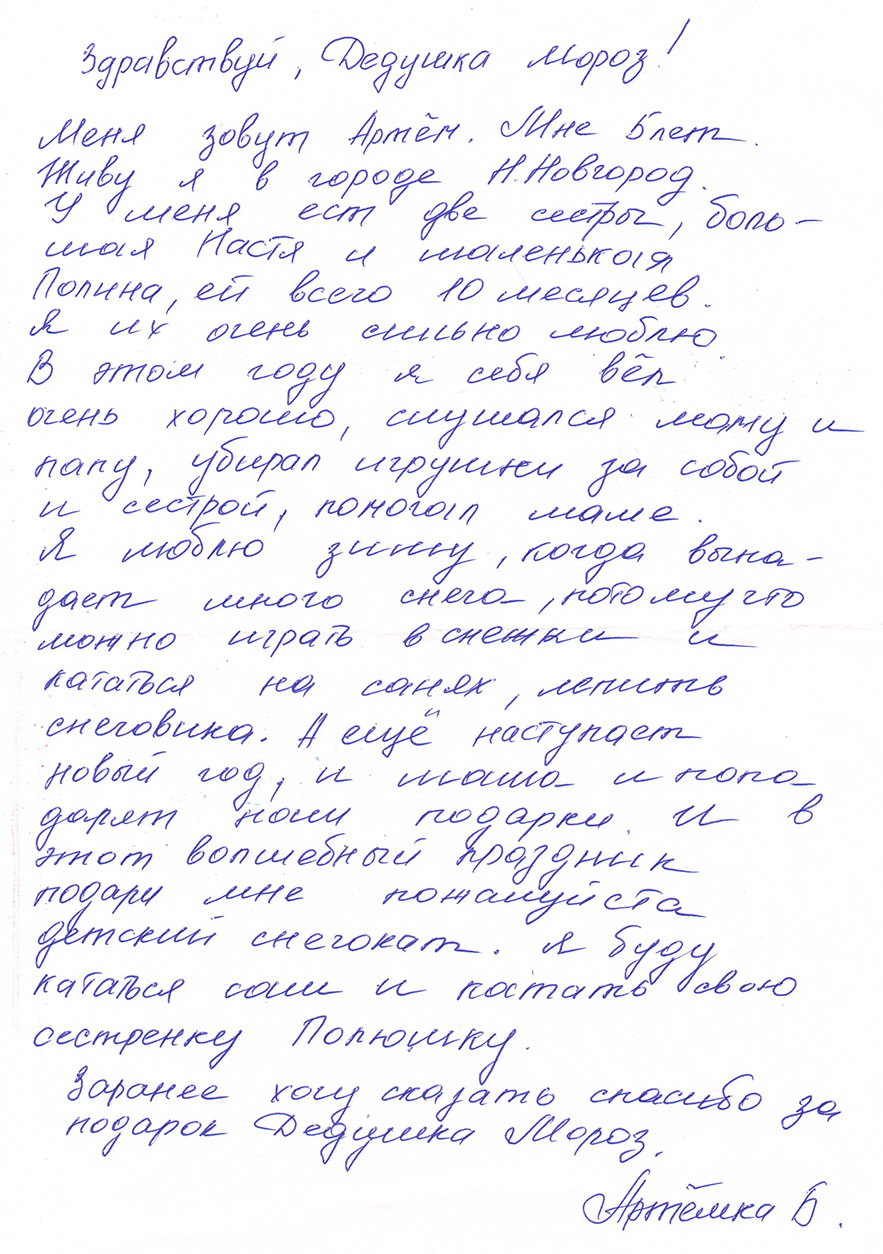 Здравствуй, Дедушка Мороз!
Меня зовут Артём. Мне 6 лет.
Живу я в городе Н.Новгород.
У меня ест две сестры, боль-
шая Настя и маленькая
Полина, ей всего 10 месяцев.
Я их очень сильно люблю
В этом году я себя вёл
очень хорошо, слушался маму и
папу, убирал игрушки за собой
и сестрой, помогал маме.
Я люблю зиму, когда выпа-
дает много снега, потому что
можно играть в снежки и
кататься на санях, лепить
снеговика. А ещё наступает
новый год, и мама и папа
дарят нам подарки. И в
этот волшебный праздник
подари мне пожалуйста
детский снегокат. Я буду
кататься сам и катать свою
сестренку Полюшку.
Заранее хочу сказать спасибо за
подарок Дедушка Мороз.
Артёмка Б.